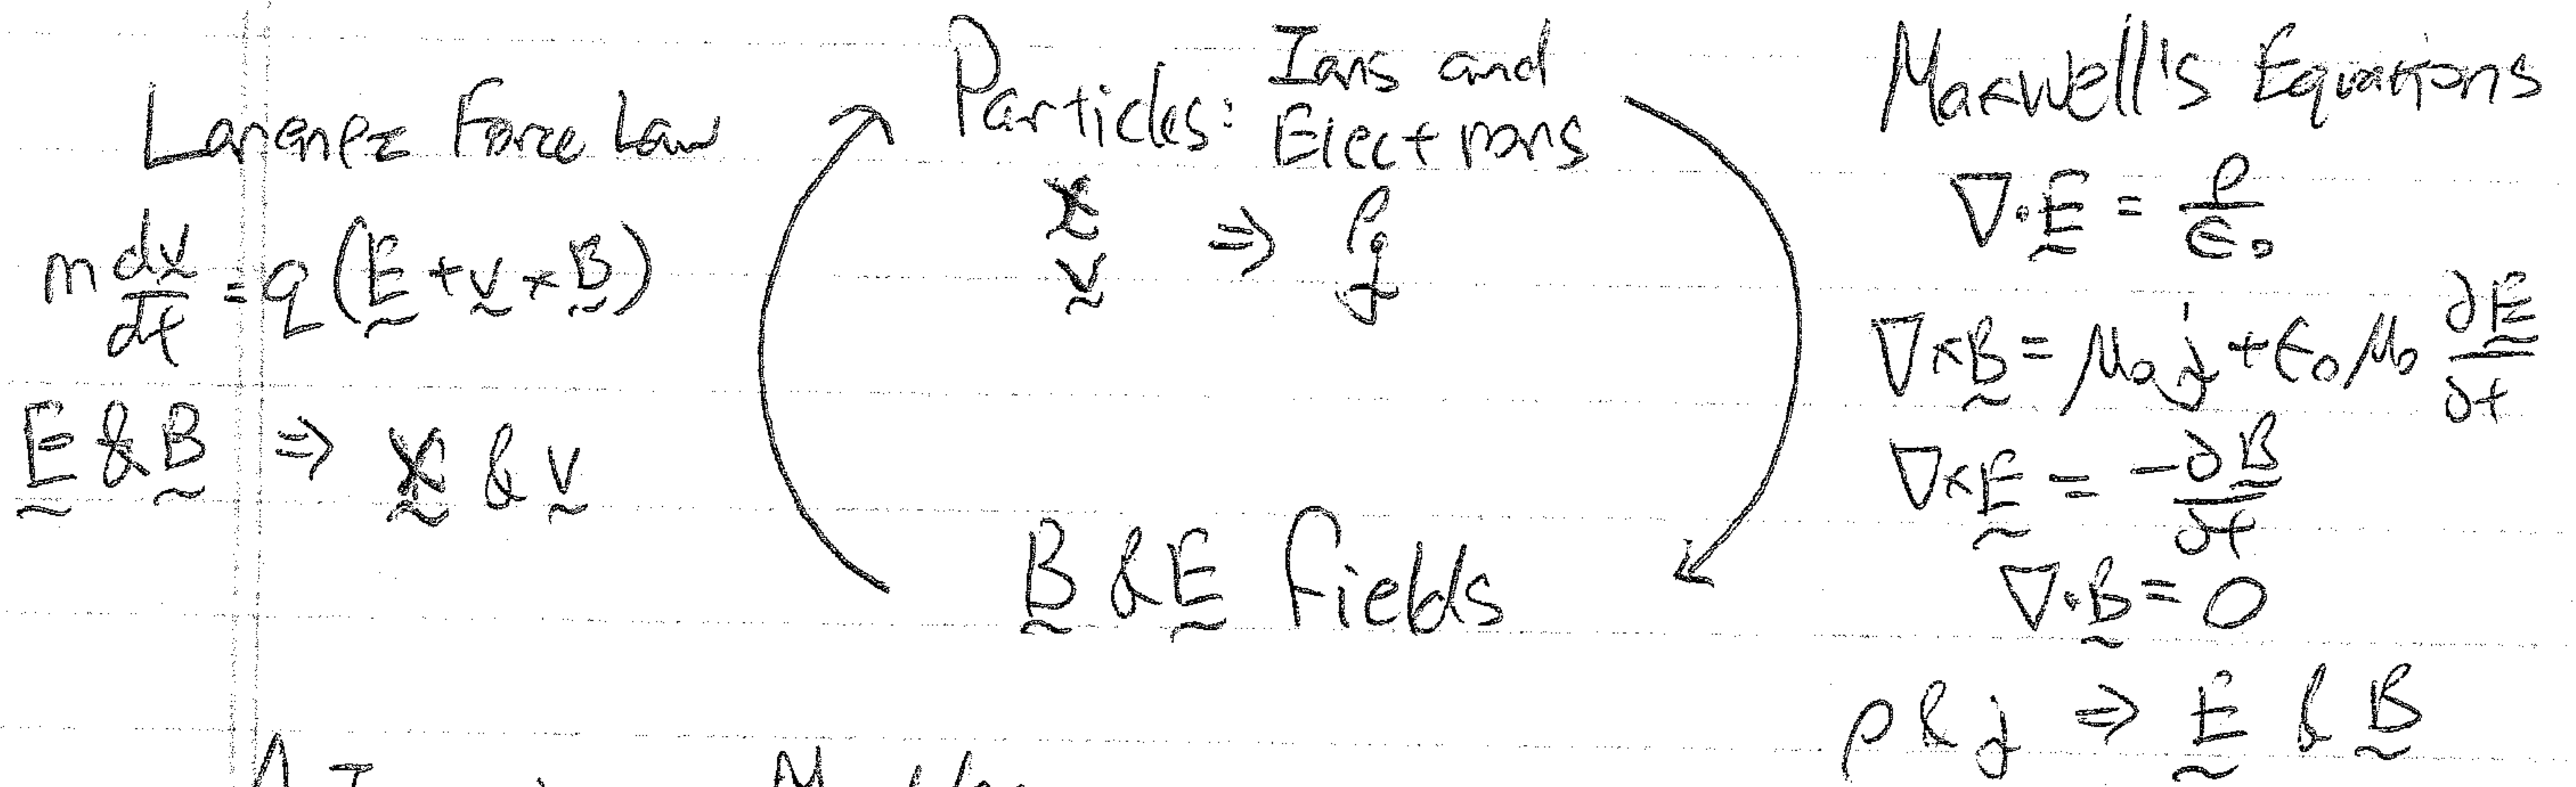 Lorentz Force Law
m dv/dt = q (E + v × B)
E & B ⇒ x & v
Particles: Ions and
Electrons
x
v ⇒ ρ
j
B & E fields
Maxwell's Equations
∇·E = ρ/ϵ₀
∇×B = μ₀ j + ϵ₀ μ₀ ∂E/∂t
∇×E = -∂B/∂t
∇·B = 0
ρ & j ⇒ E & B